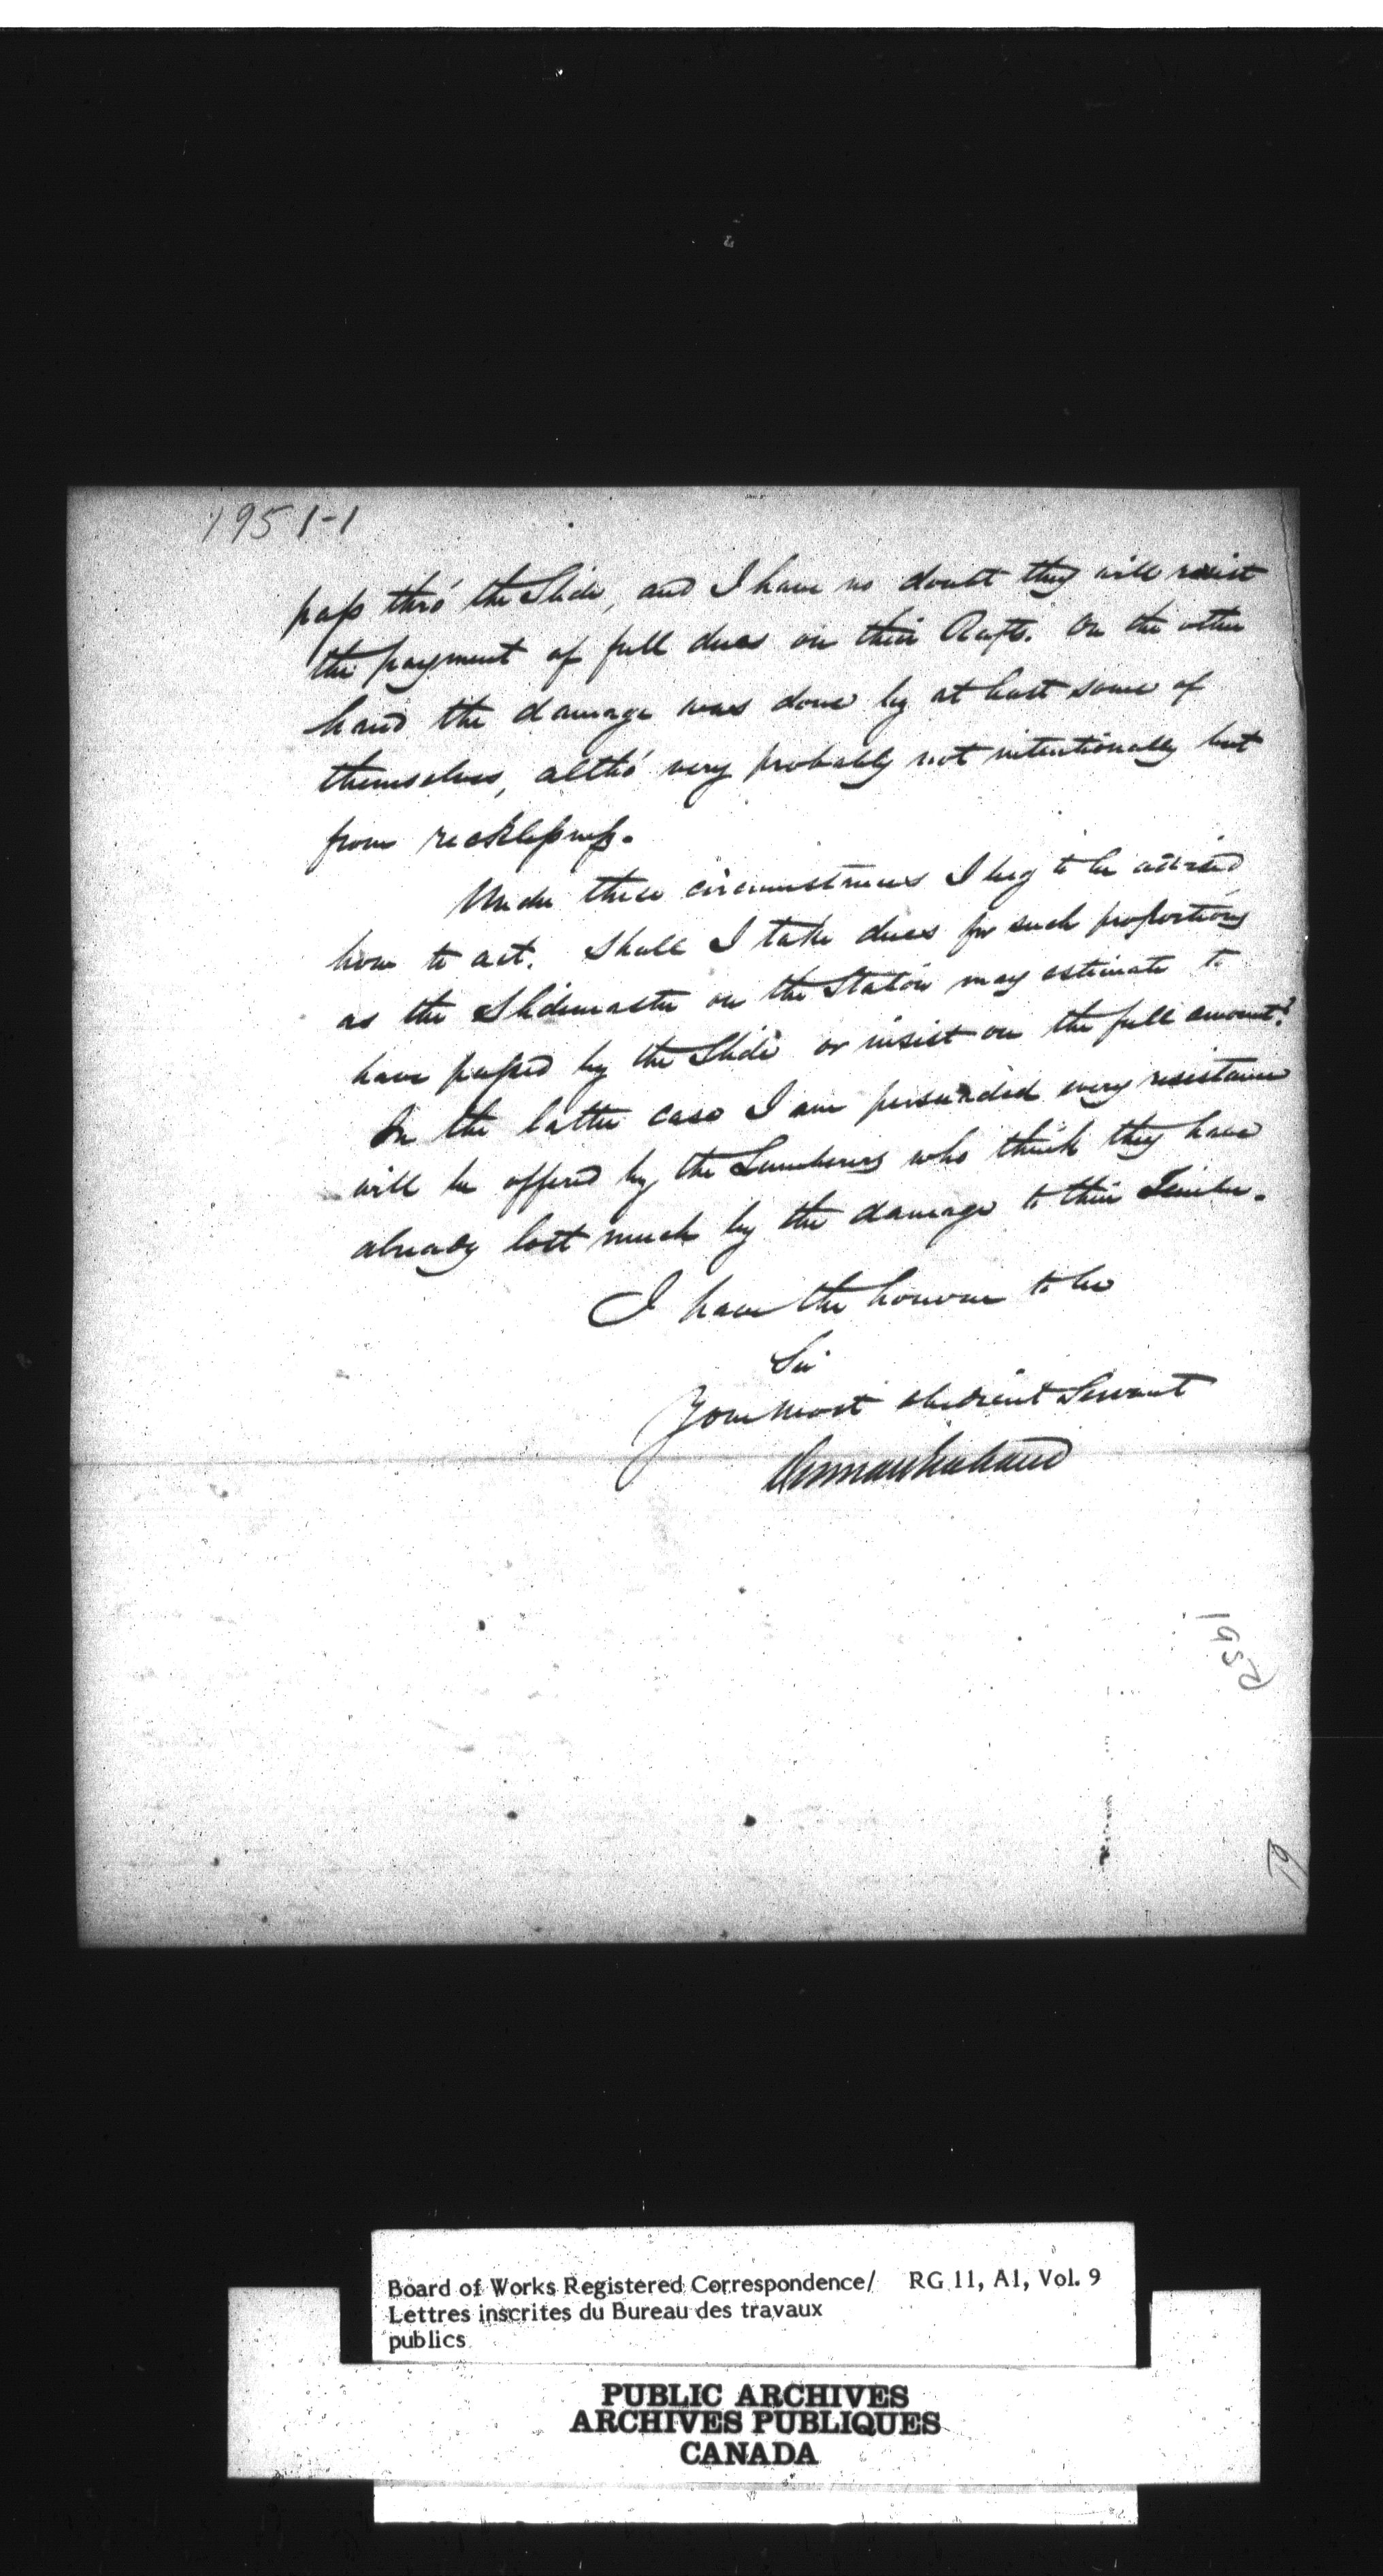 1951-1
pass thro' the Slide, and I have no doubt they will resist
the payment of full dues on their Rafts. On the other
hand the damage was done by at least some of
themselves, altho' very probably not intentionally but
from recklessness.
Under these circumstances I beg to be advised
how to act. Shall I take dues for such proportions
as the Slidemaster on the Station may estimate to
have passed by the Slide or insist on the full amount?
In the latter case I am persuaded every resistance
will be offered by the Lumberers who think they have
already lost much by the damage to their Timber.
I have the honour to be
Sir
Your most obedient Servant
Board of Works Registered Correspondence/ RG 11, A1, Vol. 9
Lettres inscrites du Bureau des travaux
publics
PUBLIC ARCHIVES
ARCHIVES PUBLIQUES
CANADA